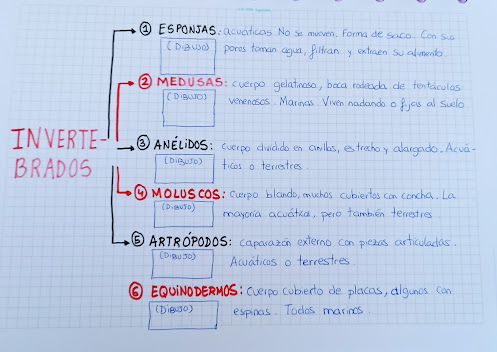 INVERTE-
BRADOS
① ESPONJAS: acuáticas No se mueven, forma de saco. Con sus
(DIBUJO) poros toman agua, filtran y extraen su alimento.
② MEDUSAS: cuerpo gelatinoso, boca rodeada de tentáculos
(DIBUJO) venenosos. Marinas. Viven nadando o fijos al suelo
③ ANÉLIDOS: cuerpo dividido en anillos, estrecho y alargado. Acuá-
(DIBUJO) ticos o terrestres.
④ MOLUSCOS: Cuerpo blando, muchos cubiertos con concha. La
(DIBUJO) mayoría acuática, pero también terrestres
⑤ ARTRÓPODOS: caparazón externo con piezas articuladas.
(DIBUJO) Acuáticos o terrestres.
⑥ EQUINODERMOS: Cuerpo cubierto de placas, algunos con
(DIBUJO) espinas. Todos marinos.